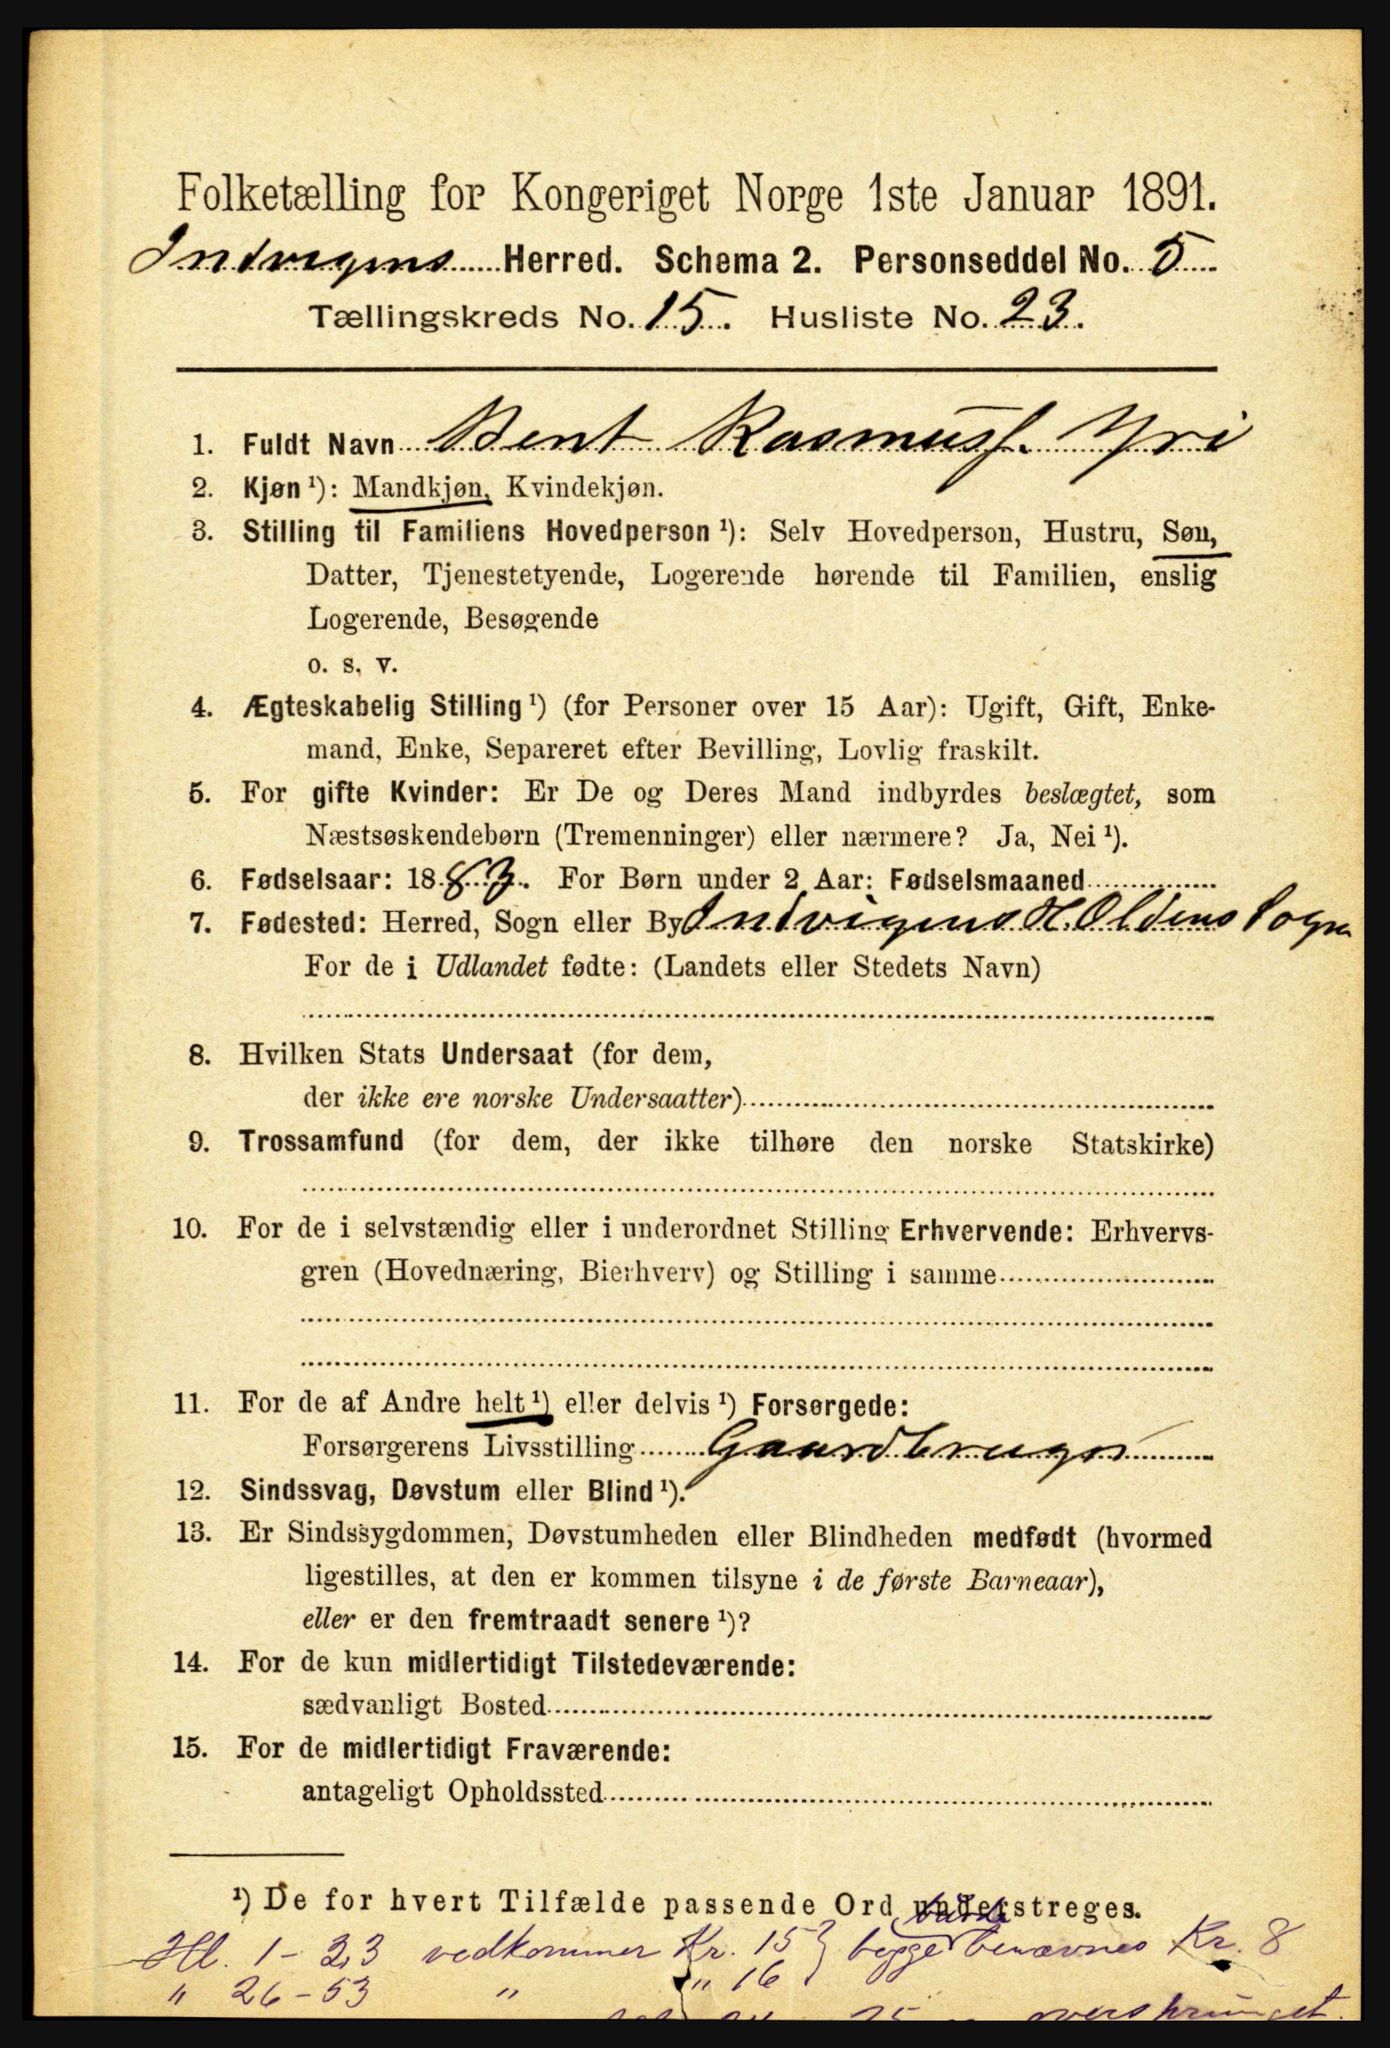 Folketælling for Kongeriget Norge 1ste Januar 1891.
Indvigens Herred. Schema 2. Personseddel No. 5
Tællingskreds No. 15. Husliste No. 23.
1. Fuldt Navn Bent Rasmusf. Yri
2. Kjøn ¹): Mandkjøn, Kvindekjøn.
3. Stilling til Familiens Hovedperson ¹): Selv Hovedperson, Hustru, Søn,
Datter, Tjenestetyende, Logerende hørende til Familien, enslig
Logerende, Besøgende
o. s. v.
4. Ægteskabelig Stilling ¹) (for Personer over 15 Aar): Ugift, Gift, Enke-
mand, Enke, Separeret efter Bevilling, Lovlig fraskilt.
5. For gifte Kvinder: Er De og Deres Mand indbyrdes beslægtet, som
Næstsøskendebørn (Tremenninger) eller nærmere? Ja, Nei ¹).
6. Fødselsaar: 1883. For Børn under 2 Aar: Fødselsmaaned
7. Fødested: Herred, Sogn eller By Indvigens H. Oldens Sogn
For de i Udlandet fødte: (Landets eller Stedets Navn)
8. Hvilken Stats Undersaat (for dem,
der ikke ere norske Undersaatter)
9. Trossamfund (for dem, der ikke tilhøre den norske Statskirke)
10. For de i selvstændig eller i underordnet Stilling Erhvervende: Erhvervs-
gren (Hovednæring, Bierhverv) og Stilling i samme
11. For de af Andre helt ¹) eller delvis ¹) Forsørgede:
Forsørgerens Livsstilling Gaardbruger
12. Sindssvag, Døvstum eller Blind ¹).
13. Er Sindssygdommen, Døvstumheden eller Blindheden medfødt (hvormed
ligestilles, at den er kommen tilsyne i de første Barneaar),
eller er den fremtraadt senere ¹)?
14. For de kun midlertidigt Tilstedeværende:
sædvanligt Bosted
15. For de midlertidigt Fraværende:
antageligt Opholdssted
¹) De for hvert Tilfælde passende Ord understreges.
Hl. 1-23 vedkommer Kr. 15 } begge benævnes Kr. 8
" 26-53 " " 16
25 oversprunget.